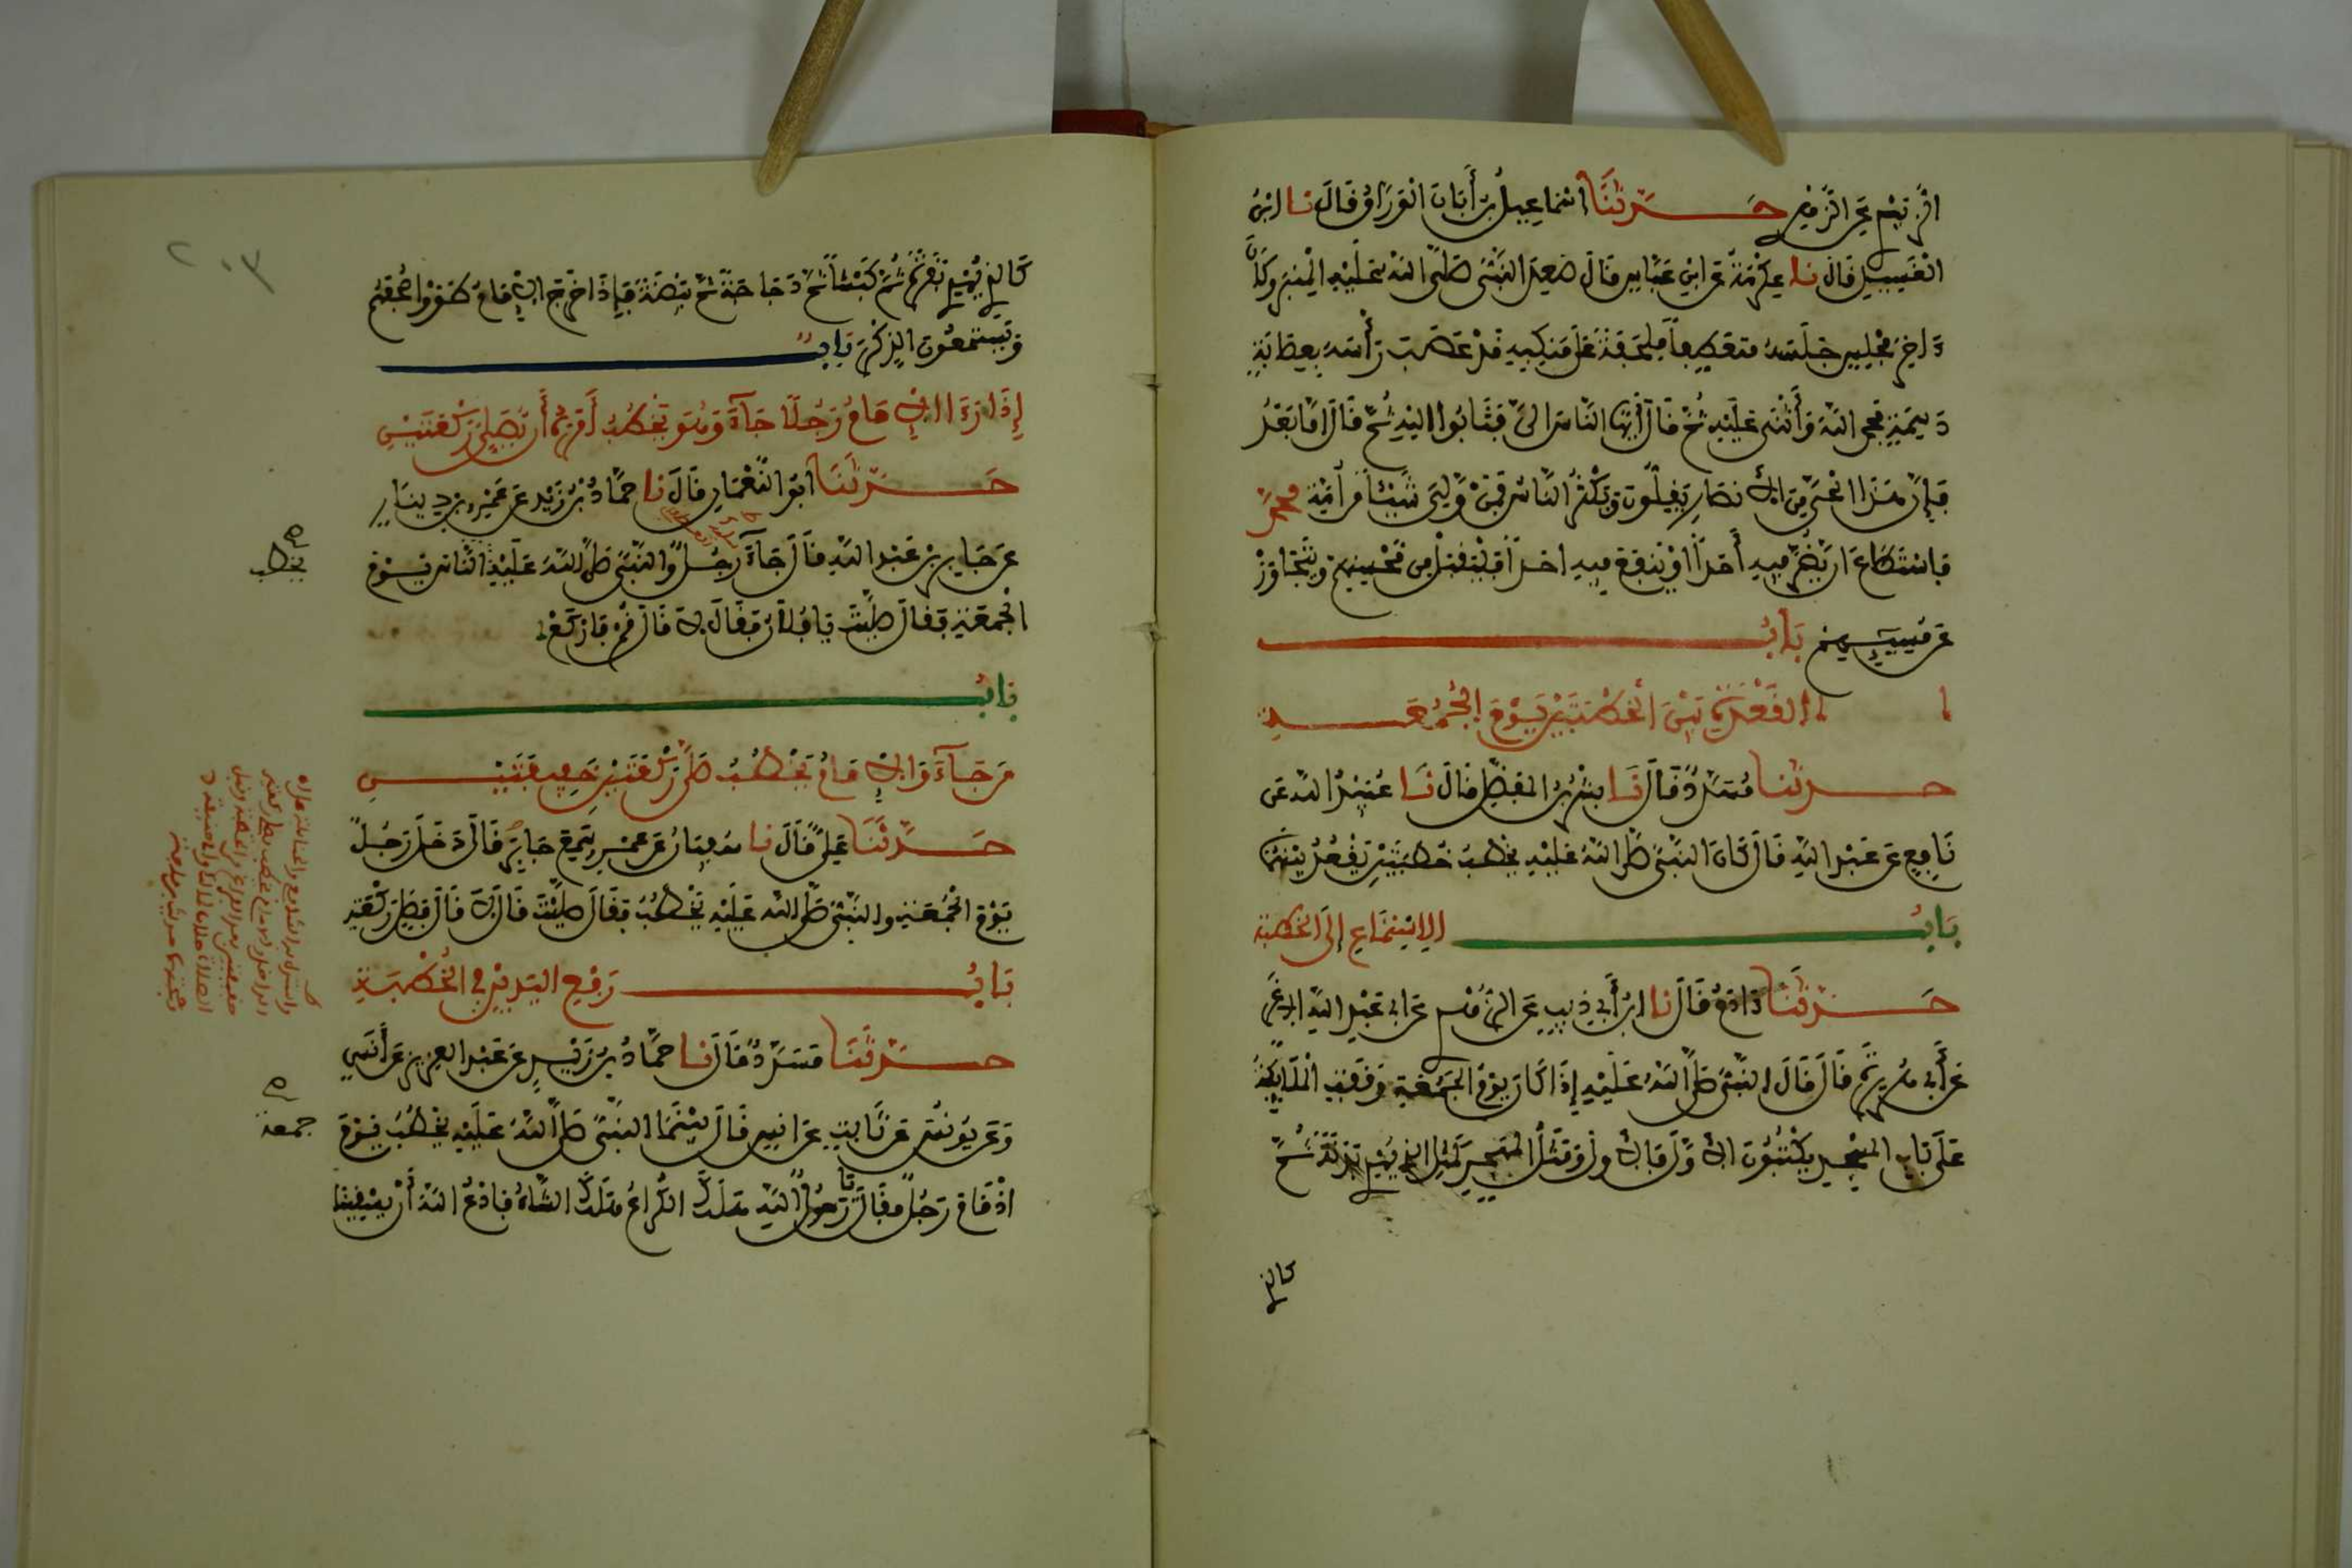 الزُّبَيْدِيُّ عَنِ الزُّهْرِيِّ حَدَّثَنَا إِسْمَاعِيلُ بْنُ أَبَانَ الْوَرَّاقُ قَالَ نا ابْنُ
الْغَسِيلِ قَالَ نا عِكْرِمَةُ عَنِ ابْنِ عَبَّاسٍ قَالَ صَعِدَ النَّبِيُّ صَلَّى اللَّهُ عَلَيْهِ الْمِنْبَرَ وَكَانَ
ءَاخِرَ مَجْلِسٍ جَلَسَهُ مُتَعَطِّفاً مِلْحَفَةً عَلَى مَنْكِبَيْهِ قَدْ عَصَبَ رَأْسَهُ بِعِصَابَةٍ
دَسِمَةٍ فَحَمِدَ اللَّهَ وَأَثْنَى عَلَيْهِ ثُمَّ قَالَ أَيُّهَا النَّاسُ إِلَيَّ فَثَابُوا إِلَيْهِ ثُمَّ قَالَ أَمَّا بَعْدُ
فَإِنَّ هَذَا الْحَيَّ مِنَ الْأَنْصَارِ يَقِلُّونَ وَيَكْثُرُ النَّاسُ فَمَنْ وَلِيَ شَيْئاً مِنْ أُمَّةِ مُحَمَّدٍ
فَاسْتَطَاعَ أَنْ يَضُرَّ فِيهِ أَحَداً أَوْ يَنْفَعَ فِيهِ أَحَداً فَلْيَقْبَلْ مِنْ مُحْسِنِهِمْ وَيَتَجَاوَزْ
عَنْ مُسِيئِهِمْ بَابُ
الْقَعْدَةِ بَيْنَ الْخُطْبَتَيْنِ يَوْمَ الْجُمُعَةِ
حدثنا مُسَدَّدٌ قَالَ نَا بِشْرُ بْنُ الْمُفَضَّلِ قَالَ نَا عُبَيْدُ اللَّهِ عَنْ
نَافِعٍ عَنْ عَبْدِ اللَّهِ قَالَ كَانَ النَّبِيُّ صَلَّى اللَّهُ عَلَيْهِ يَخْطُبُ خُطْبَتَيْنِ يَقْعُدُ بَيْنَهُمَا
بَابُ الِاسْتِمَاعِ إِلَى الْخُطْبَةِ
حَدَّثَنَا ءَادَمُ قَالَ نا ابْنُ أَبِي ذِيبٍ عَنِ الزُّهْرِيِّ عَنْ أَبِي عَبْدِ اللَّهِ الْأَغَرِّ
عَنْ أَبِي هُرَيْرَةَ قَالَ قَالَ النَّبِيُّ صَلَّى اللَّهُ عَلَيْهِ إِذَا كَانَ يَوْمُ الْجُمُعَةِ وَقَفَتِ الْمَلَائِكَةُ
عَلَى بَابِ الْمَسْجِدِ يَكْتُبُونَ الْأَوَّلَ فَالْأَوَّلَ وَمَثَلُ الْمُهَجِّرِ كَمَثَلِ الَّذِي يُهْدِي بَدَنَةً ثُمَّ
كالذي
٢٠٣
كَالَّذِي يُهْدِي بَقَرَةً ثُمَّ كَبْشاً ثُمَّ دَجَاجَةً ثُمَّ بَيْضَةً فَإِذَا خَرَجَ الْإِمَامُ طَوَوْا صُحُفَهُمْ
وَيَسْتَمِعُونَ الذِّكْرَ بَابٌ
إِذَا رَءَا الْإِمَامُ رَجُلًا جَآءَ وَهُوَ يَخْطُبُ أَمَرَهُ أَنْ يُصَلِّيَ رَكْعَتَيْنِ
حَدَّثَنَا أَبُو النُّعْمَانِ قَالَ نا حَمَّادُ بْنُ زَيْدٍ عَنْ عَمْرِو بْنِ دِينَارٍ
عَنْ جَابِرِ بْنِ عَبْدِ اللَّهِ قَالَ جَآءَ رَجُلٌ وَالنَّبِيُّ صَلَّى اللَّهُ عَلَيْهِ النَّاسَ يَوْمَ
يخطب
الْجُمُعَةِ فَقَالَ صَلَّيْتَ يَا فُلَانُ فَقَالَ لَا قَالَ قُمْ فَارْكَعْ
بَابُ
مَنْ جَآءَ وَالْإِمَامُ يَخْطُبُ صَلَّى رَكْعَتَيْنِ خَفِيفَتَيْنِ
حَدَّثَنَا عَلِيٌّ قَالَ نا سُفْيَانُ عَنْ عَمْرٍو سَمِعَ جَابِراً قَالَ دَخَلَ رَجُلٌ
يَوْمَ الْجُمُعَةِ وَالنَّبِيُّ صَلَّى اللَّهُ عَلَيْهِ يَخْطُبُ فَقَالَ صَلَّيْتَ قَالَ لَا قَالَ فَصَلِّ رَكْعَتَيْنِ
بَابُ رَفْعِ الْيَدَيْنِ فِي الْخُطْبَةِ
حَدَّثَنَا مُسَدَّدٌ قَالَ نا حَمَّادُ بْنُ زَيْدٍ عَنْ عَبْدِ الْعَزِيزِ عَنْ أَنَسٍ
وَعَنْ يُونُسَ عَنْ ثَابِتٍ عَنْ أَنَسٍ قَالَ بَيْنَمَا النَّبِيُّ صَلَّى اللَّهُ عَلَيْهِ يَخْطُبُ يَوْمَ
جمعة
إِذْ قَامَ رَجُلٌ فَقَالَ يَا رَسُولَ اللَّهِ هَلَكَ الْكُرَاعُ هَلَكَ الشَّاءُ فَادْعُ اللَّهَ أَنْ يَسْقِيَنَا